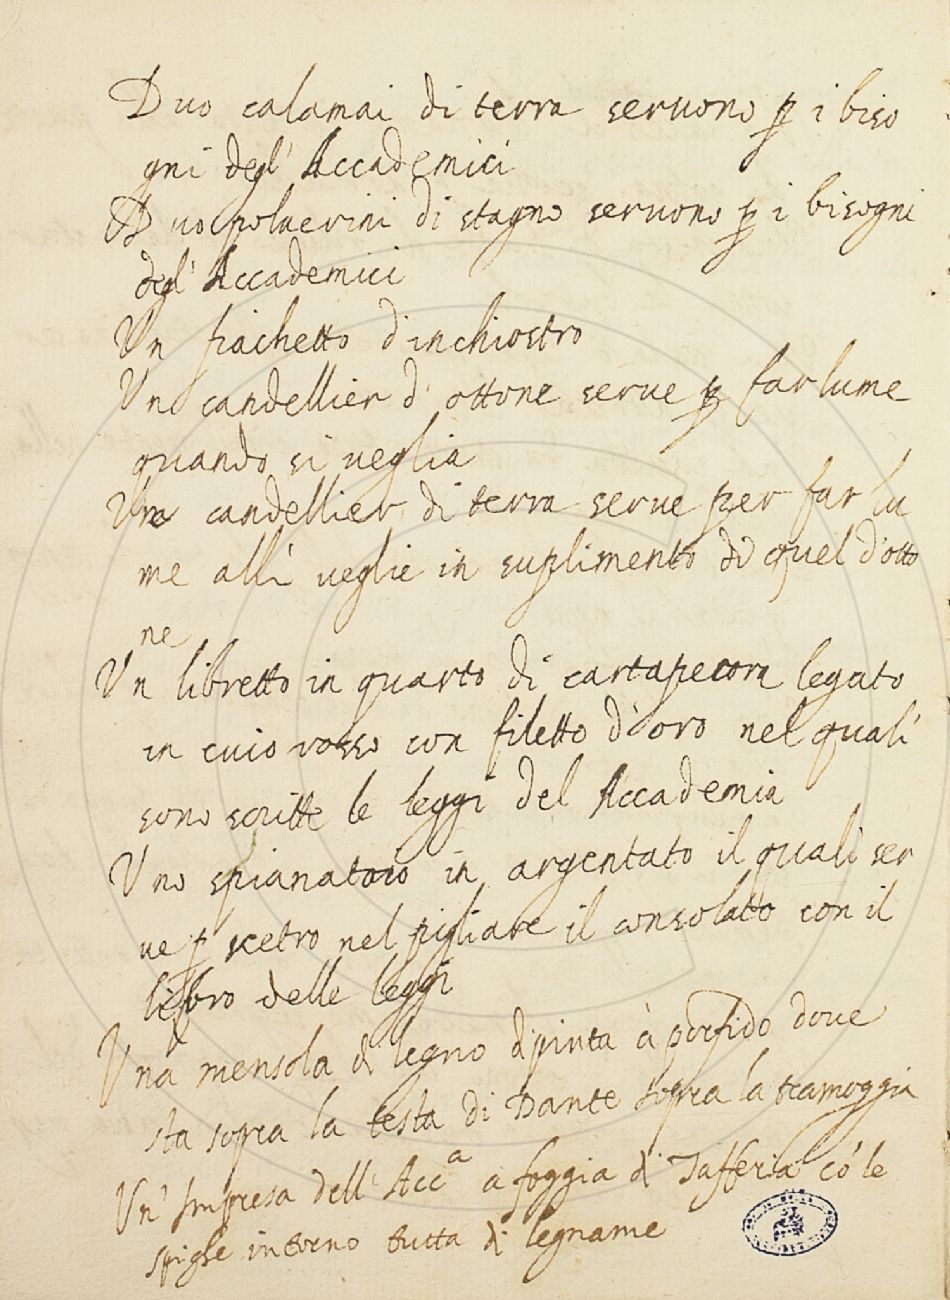 Duo calamai di terra seruono ꝑ i biso
gni degl' Accademici
Duo poluerini di stagno seruono ꝑ i bisogni
degl' Accademici
Un fiachetto d'inchiostro
Uno candellier d' ottone serue ꝑ far lume
quando si veglia
Uno candellier di terra serue per far lu
me alli ueglie in suplimento di quel d'otto
ne
Un libretto in quarto di cartapecora legato
in cuio rosso con filetto d'oro nel quali
sono scritte le leggi del Accademia
Uno spianatoio in argentato il quali ser
ue ꝑ scetro nel pigliare il consolatto con il
libro delle leggi
Una mensola di legno dipinta à porfido doue
sta sopra la testa di Dante sopra la tramoggia
Un' Impresa dell' Acc.a a foggia di Tafferia cò le
spighe intorno tutta di legname